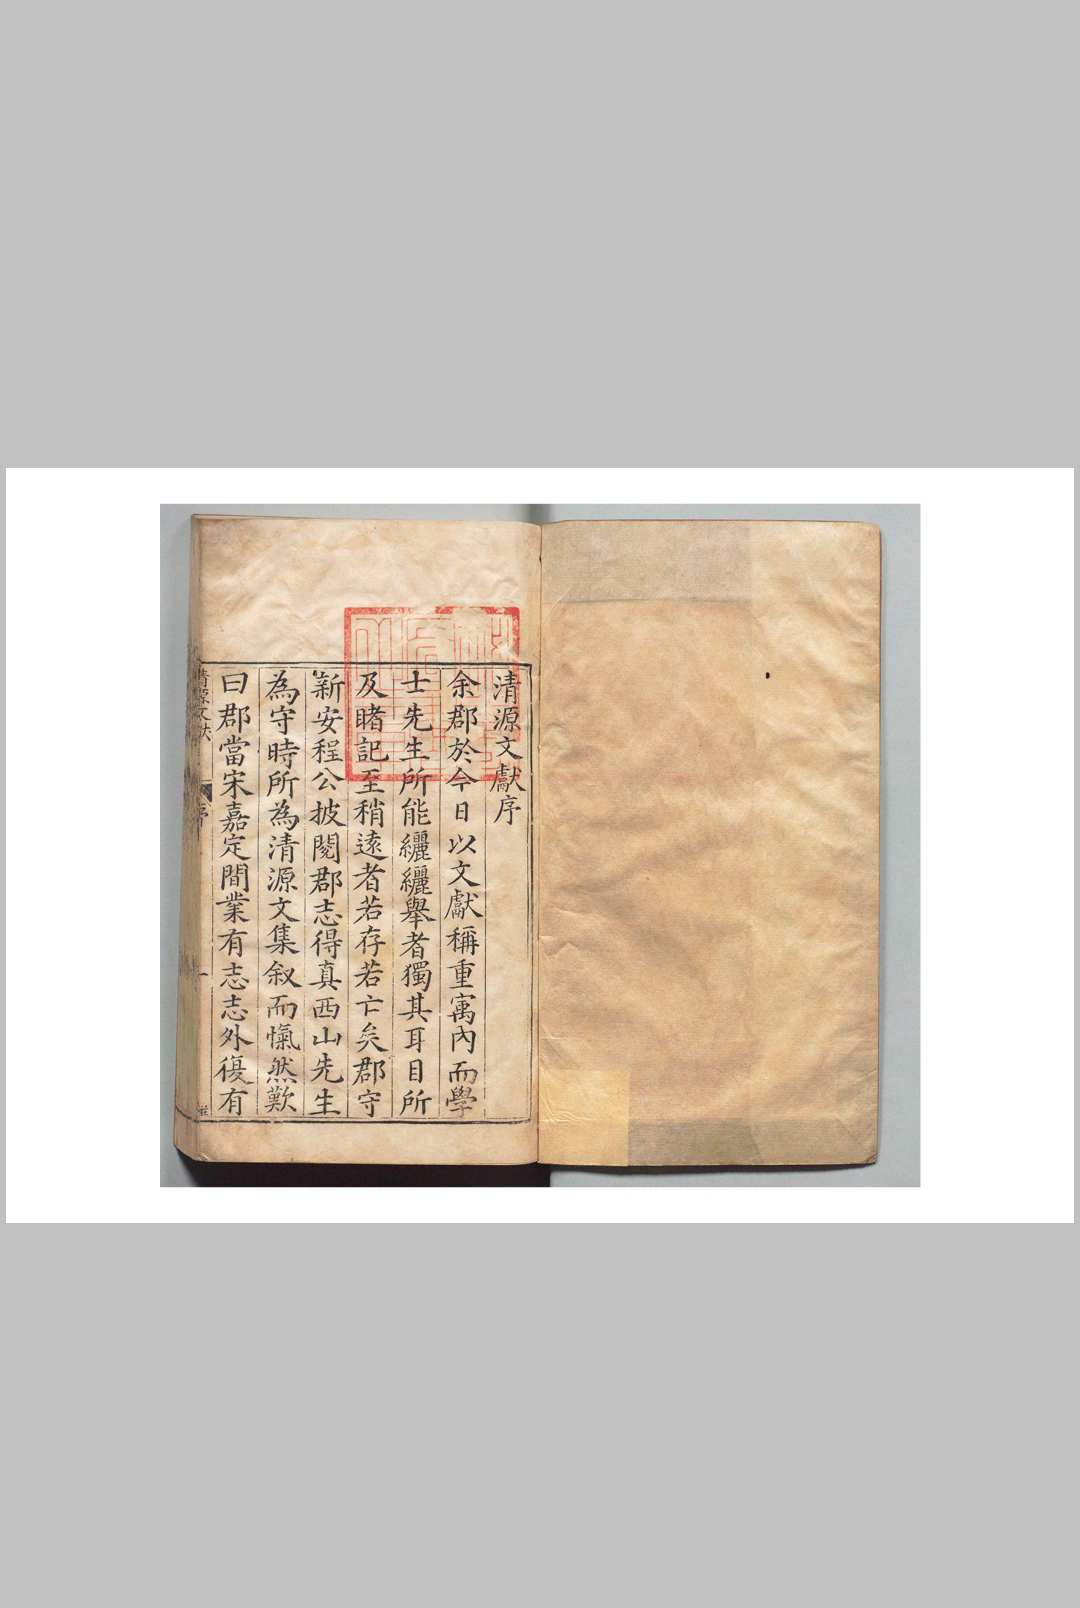 清源文獻序
余郡於今日以文獻稱重寓內而學
士先生所能纚纚舉者獨其耳目所
及睹記至稍遠者若存若亡矣郡守
新安程公披閱郡志得真西山先生
為守時所為清源文集叙而愾然歎
曰郡當宋嘉定間業有志志外復有
清源文獻
序
一